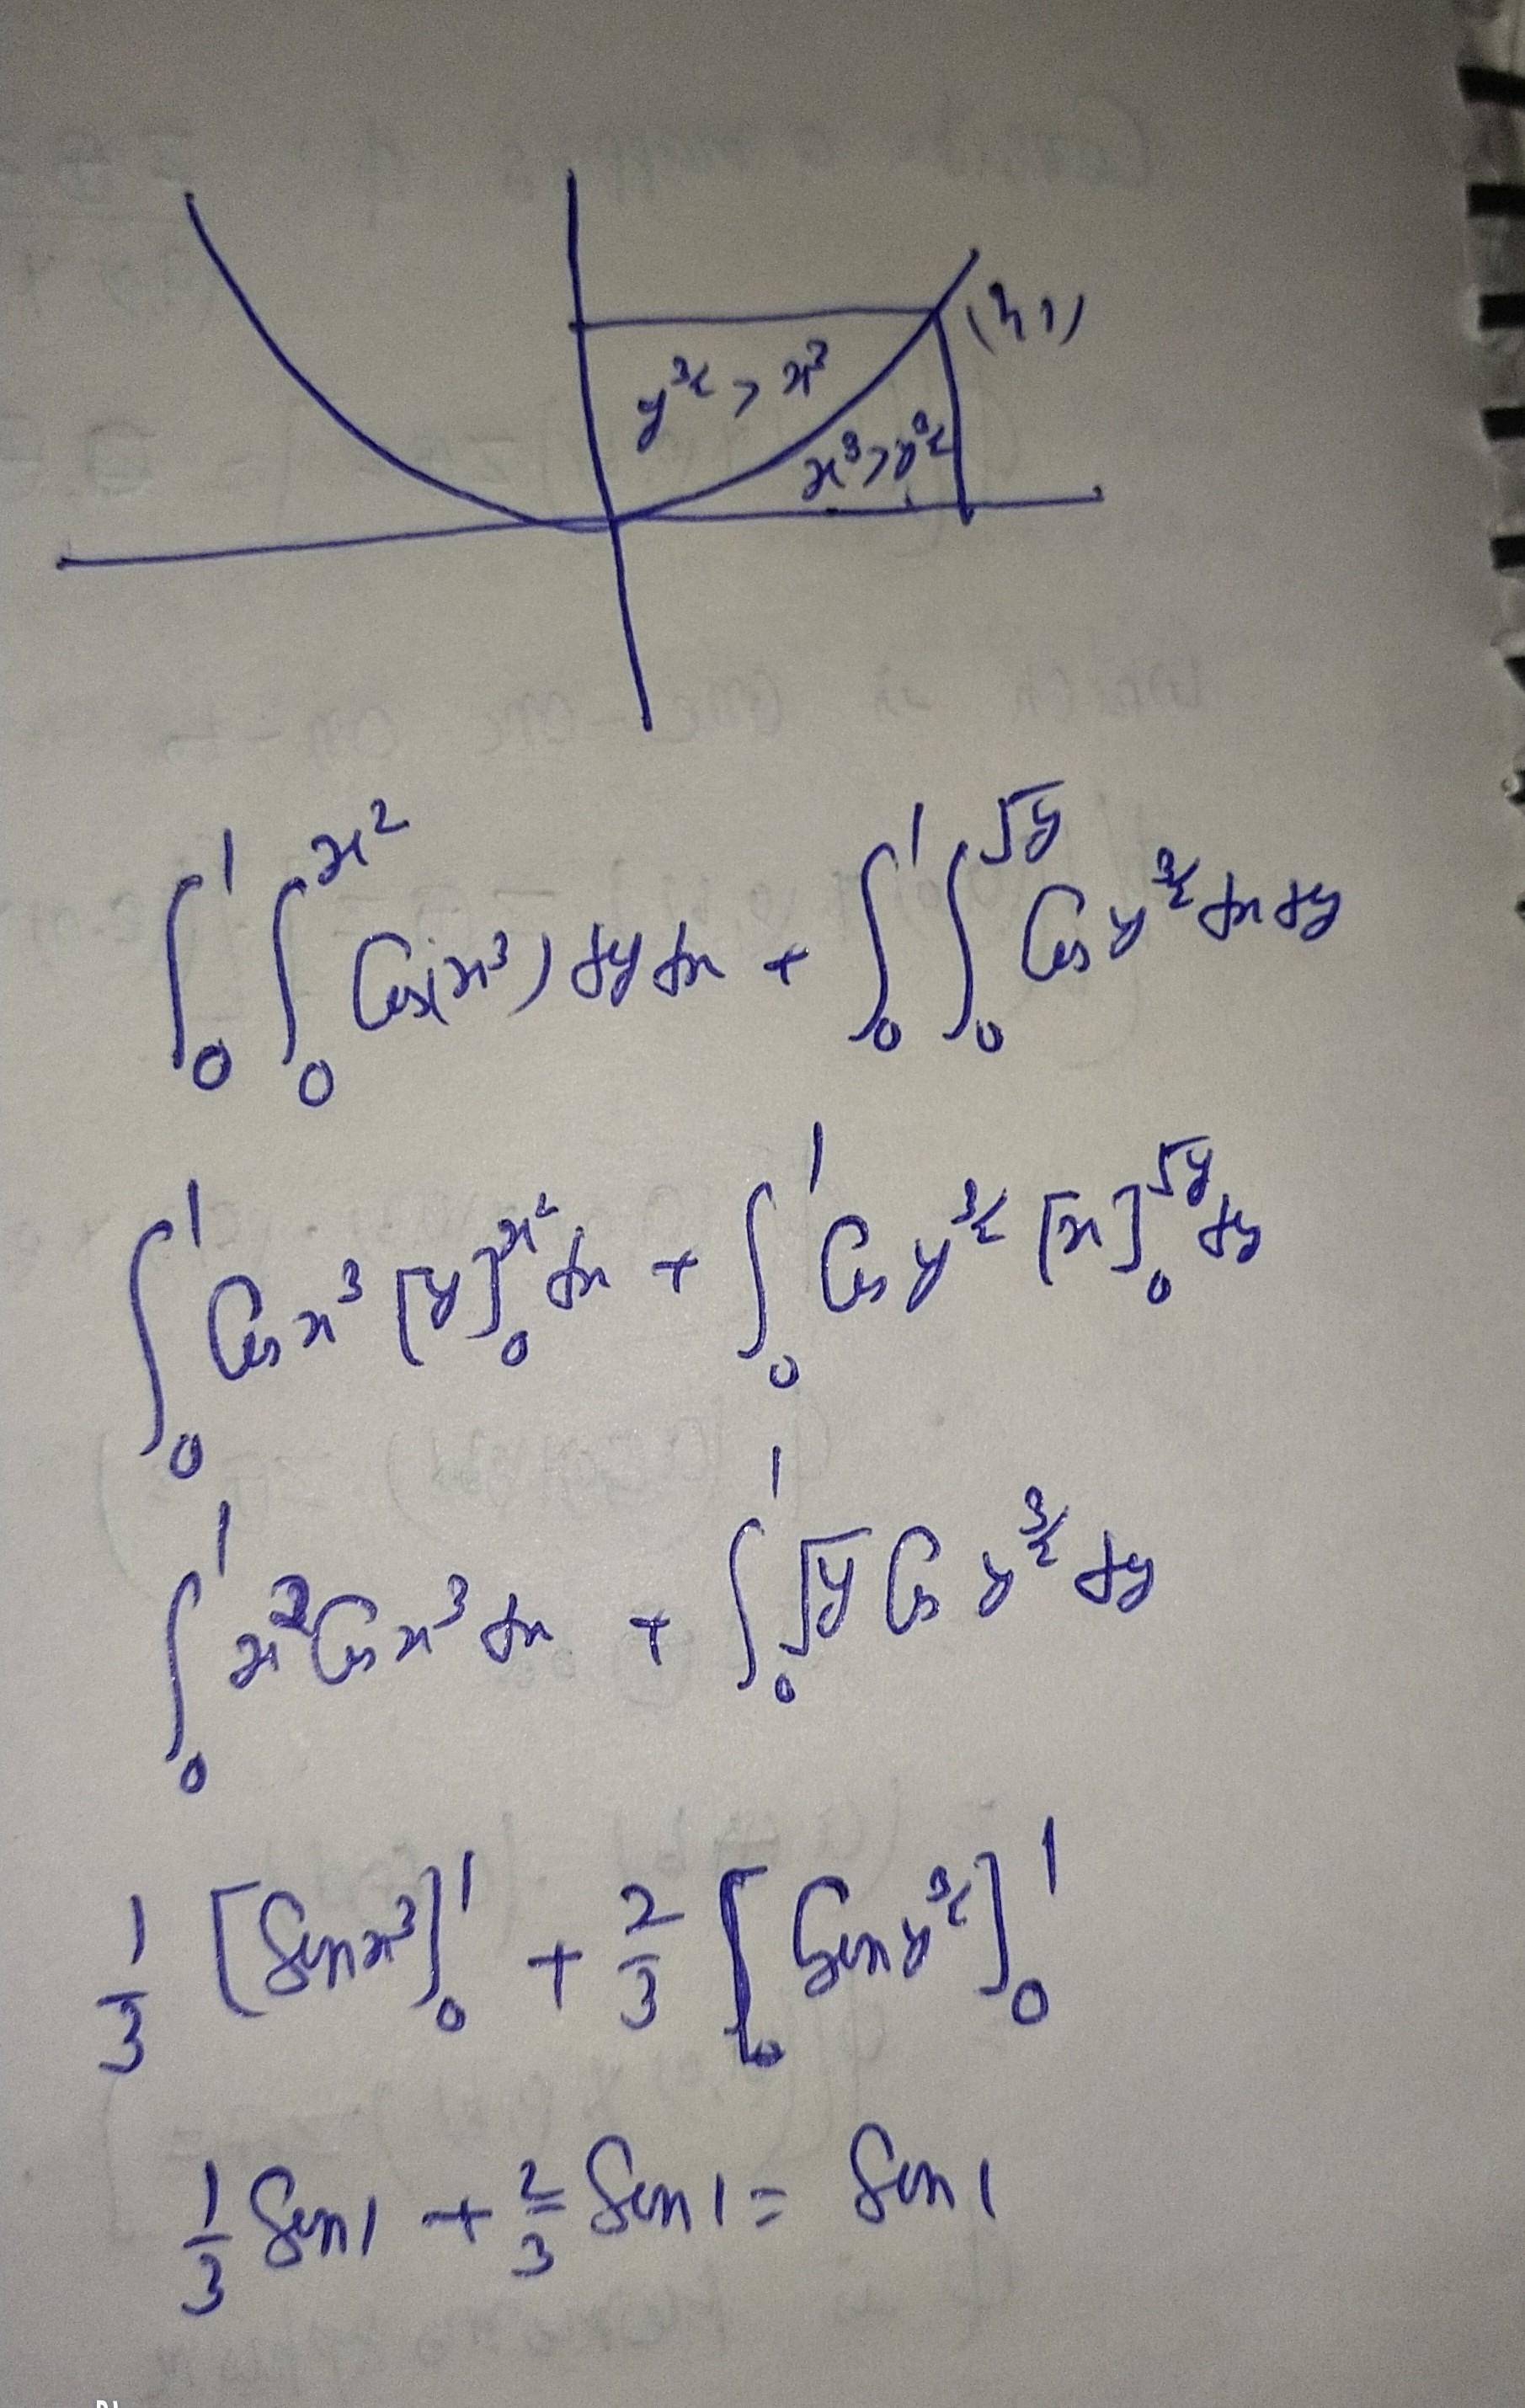 (1, 1)
y^{3/2} > x^3
x^3 > y^{3/2}
∫_0^1 ∫_0^{x^2} Cos(x^3) dy dx + ∫_0^1 ∫_0^{√y} Cos y^{3/2} dx dy
∫_0^1 Cos x^3 [y]_0^{x^2} dx + ∫_0^1 Cos y^{3/2} [x]_0^{√y} dy
∫_0^1 x^2 Cos x^3 dx + ∫_0^1 √y Cos y^{3/2} dy
1/3 [Sin x^3]_0^1 + 2/3 [Sin y^{3/2}]_0^1
1/3 Sin 1 + 2/3 Sin 1 = Sin 1